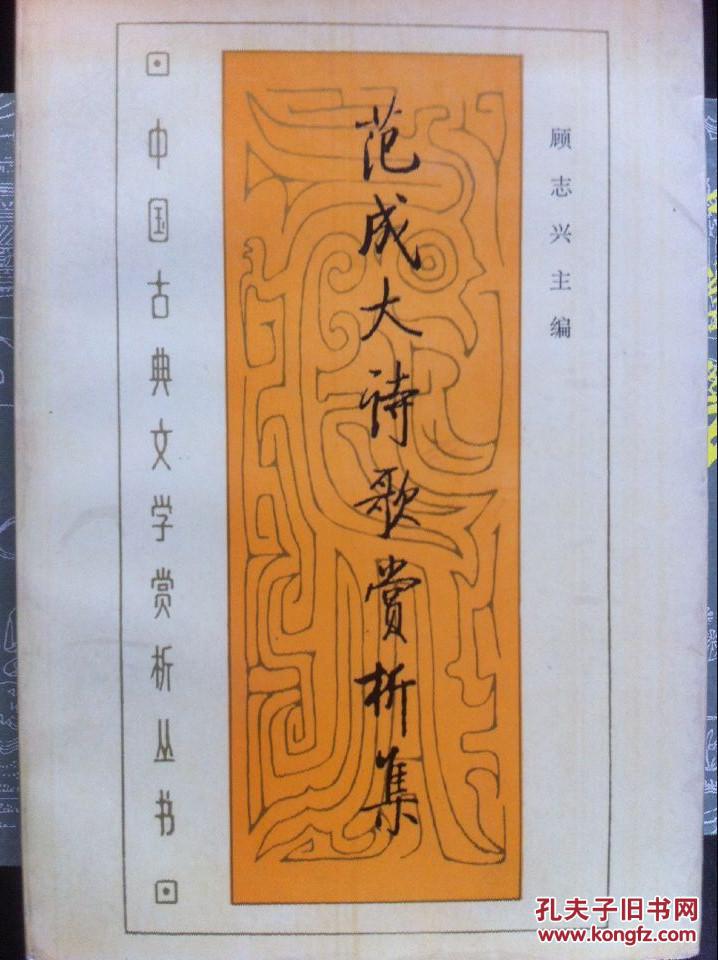 顾志兴主编
范成大诗歌赏析集
中国古典文学赏析丛书
孔夫子旧书网
www.kongfz.com